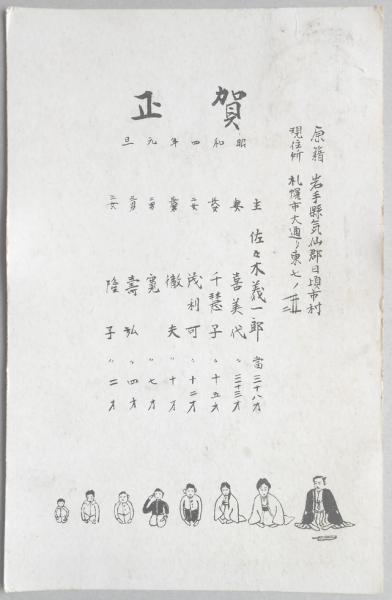 原籍 岩手縣気仙郡日頃市村
現住所 札幌市大通り東七ノ
賀正
昭和四年元旦
主 佐々木義一郎 當三十八才
妻 喜美代 〃三十三才
長女 千慧子 〃十五才
二女 茂利可 〃十二才
長男 徹夫 〃十才
二男 寛 〃七才
三男 壽弘 〃四才
三女 隆子 〃二才